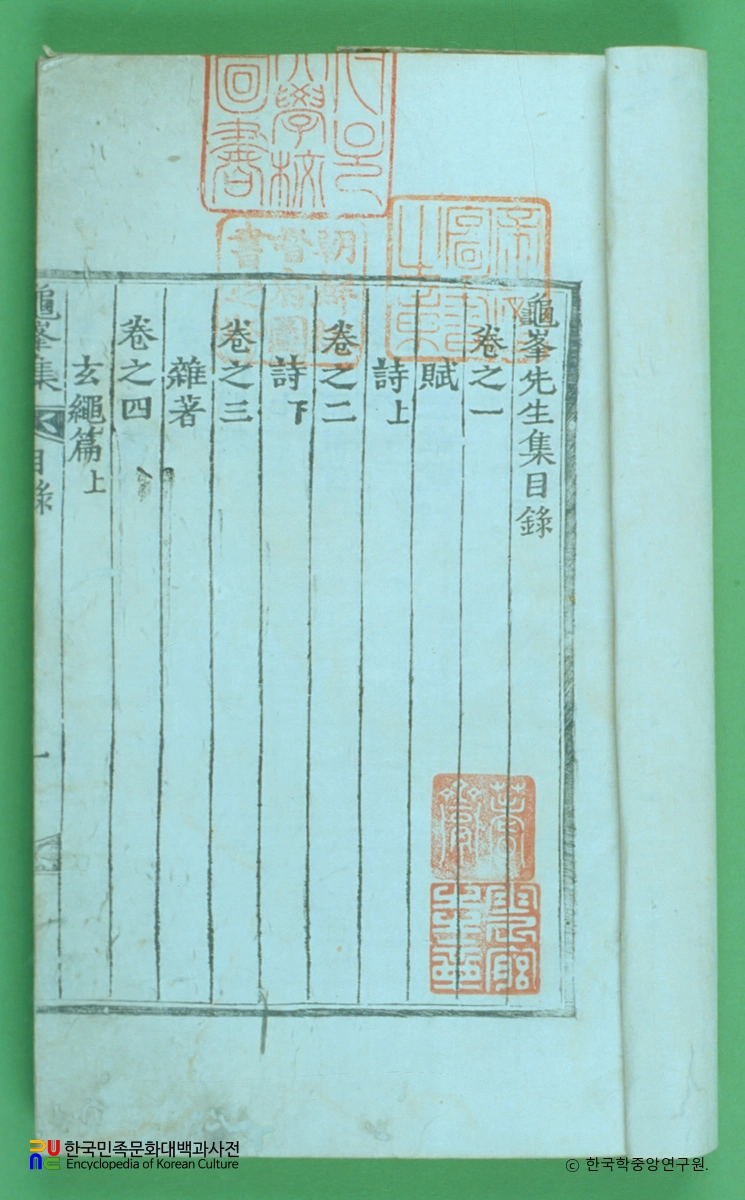 龜峯先生集目錄
卷之一
賦
詩上
卷之二
詩下
卷之三
雜著
卷之四
玄繩篇上
龜峯集 目錄 一
한국민족문화대백과사전
Encyclopedia of Korean Culture
© 한국학중앙연구원.